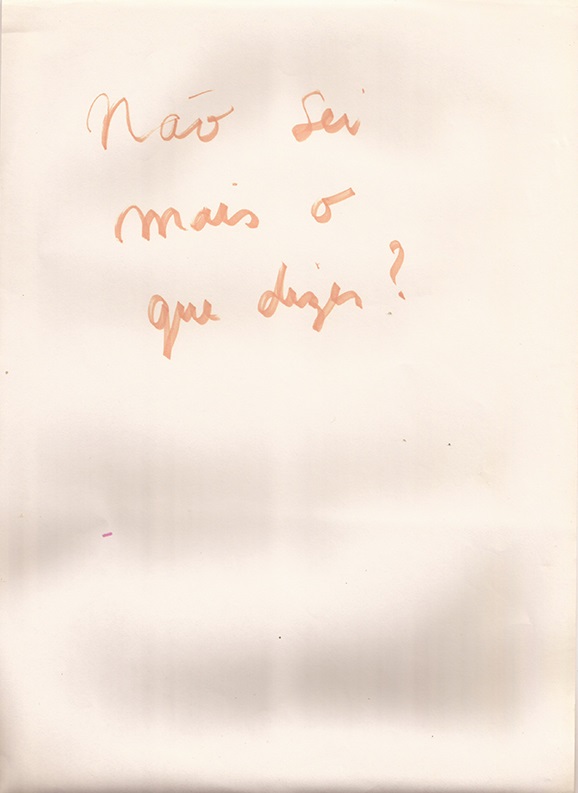 Não sei
mais o
que dizer?